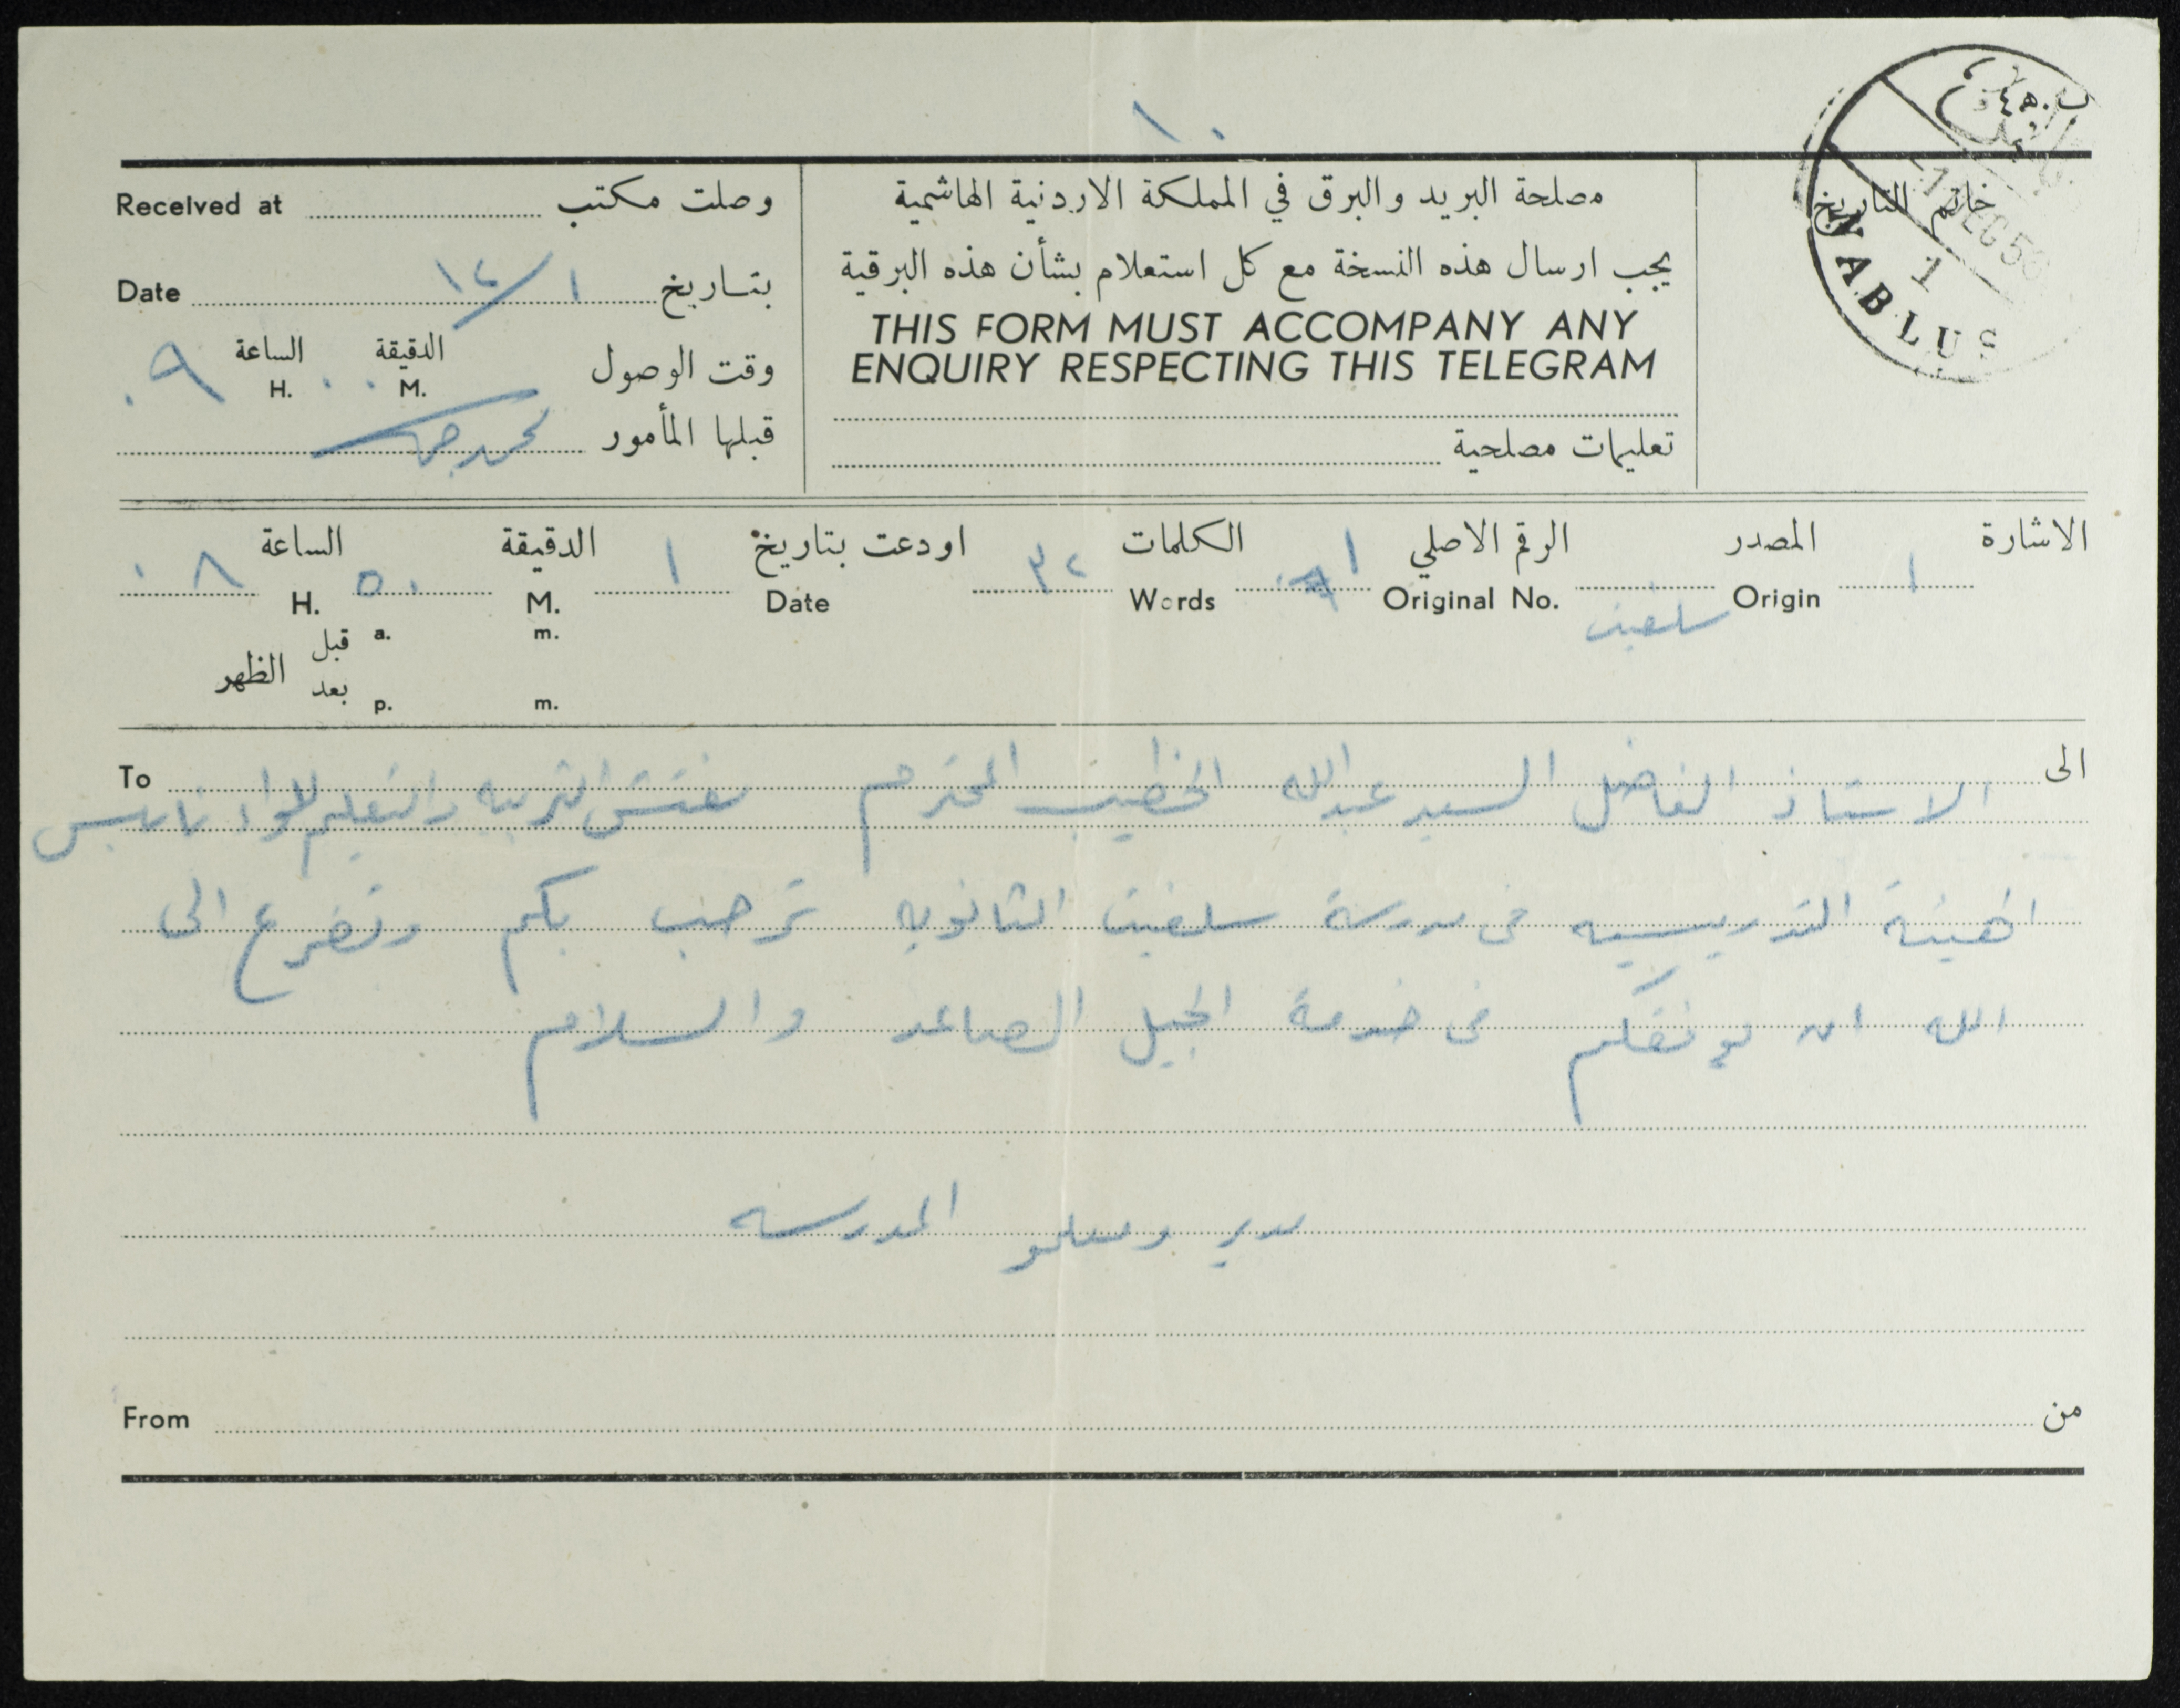 ١٠
ب.ه٤
-1 DEC 50
1
NABLUS
خاتم التاريخ
مصلحة البريد والبرق في المملكة الاردنية الهاشمية
يجب ارسال هذه النسخة مع كل استعلام بشأن هذه البرقية
THIS FORM MUST ACCOMPANY ANY
ENQUIRY RESPECTING THIS TELEGRAM
تعليمات مصلحية
وصلت مكتب Received at
بتاريخ ١/١٢ Date
وقت الوصول الدقيقة ٠٠ الساعة ٠٩
M. H.
قبلها المأمور
الاشارة ١ المصدر الرقم الاصلي ١ الكلمات ٣٢ اودعت بتاريخ ١ الدقيقة ٥٠ الساعة ٠٨
Origin سلفيت Original No. Words Date M. H.
قبل a. m.
الظهر
بعد p. m.
الى To
الاستاذ الفاضل السيد عبدالله الخطيب المحترم مفتش التربيه والتعليم للواء نابلس
الهيئة التدريسيه في مدرسة سلفيت الثانويه ترحب بكم وتضرع الى
الله ان يوفقكم في خدمة الجيل الصاعد والسلام
مدير ومعلمو المدرسه
من From